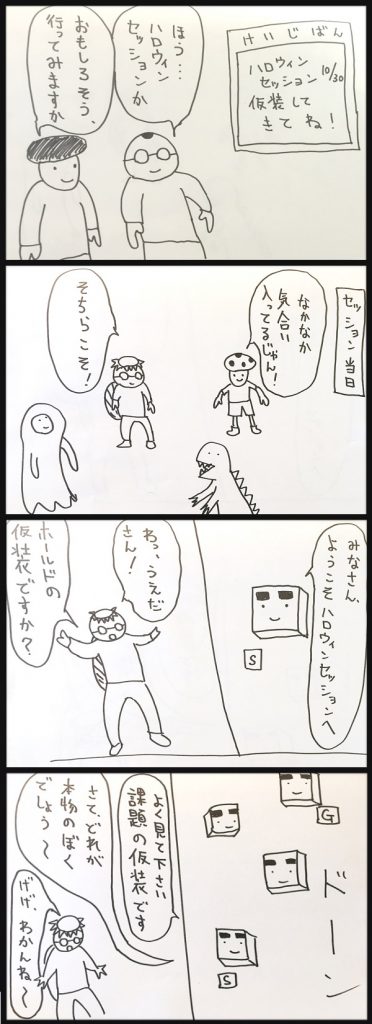 けいじばん
ハロウィン
セッション 10/30
仮装して
きてね!
ほう・・・
ハロウィン
セッションか
おもしろそう、
行ってみますか
セッション当日
なかなか
気合い
入ってるじゃん!
そちらこそ!
みなさん、
ようこそハロウィンセッションへ
S
わっ、うえだ
さん!
ホールドの
仮装ですか?
G
ドーン
S
よく見て下さい
課題の仮装です
さて、どれが
本物のぼく
でしょう〜
げげ、わかんね〜